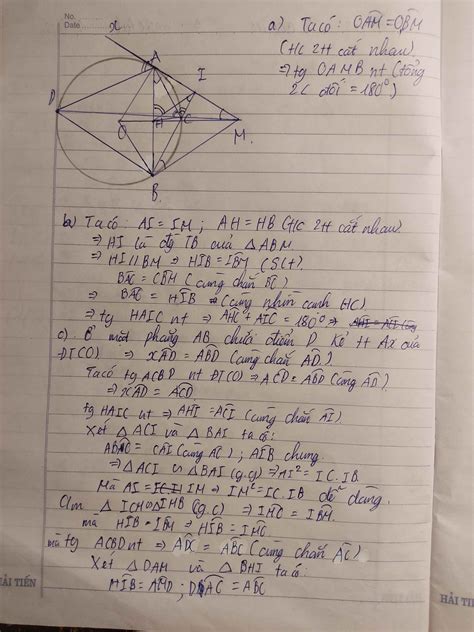 No.
Date
x
A
I
D
O
H
C
M
B
a) Ta có: OÂM = OB̂M
(t/c 2tt cắt nhau)
⇒ tg OAMB nt (tổng
2 góc đối = 180°)
b) Ta có: AI = IM ; AH = HB (t/c 2tt cắt nhau)
⇒ HI là đg TB của △ABM
⇒ HI // BM ⇒ HIB = IBM (SLT).
BAC = CBM (cùng chắn BC)
⇒ BAC = HIB (cùng nhìn cạnh HC)
⇒ tg HAIC nt ⇒ AHC + AIC = 180°
c) mặt phẳng AB chứa điểm D kẻ tt Ax của
ĐT(O) ⇒ xAD = ABD (cùng chắn AD)
Ta có tg ACBD nt ĐT(O) ⇒ ACD = ABD (cùng AD)
⇒ xAD = ACD
tg HAIC nt ⇒ AHI = ACI (cùng chắn AI)
Xét △ACI và △BAI ta có:
ABC = CAI (cùng AC) ; AIB chung
⇒ △ACI ∽ △BAI (g.g) ⇒ AI² = IC.IB
Mà AI = IM ⇒ IM² = IC.IB dễ dàng
Cm △ICM ∽ △IMB (g.c) ⇒ IMC = IBM
mà HIB = IBM ⇒ HIB = IMC
mà tg ACBD nt ⇒ ADC = ABC (cùng chắn AC)
Xét △DAM và △BHI ta có:
HIB = AMD ; = ABC
HẢI TIẾN
HẢI TI